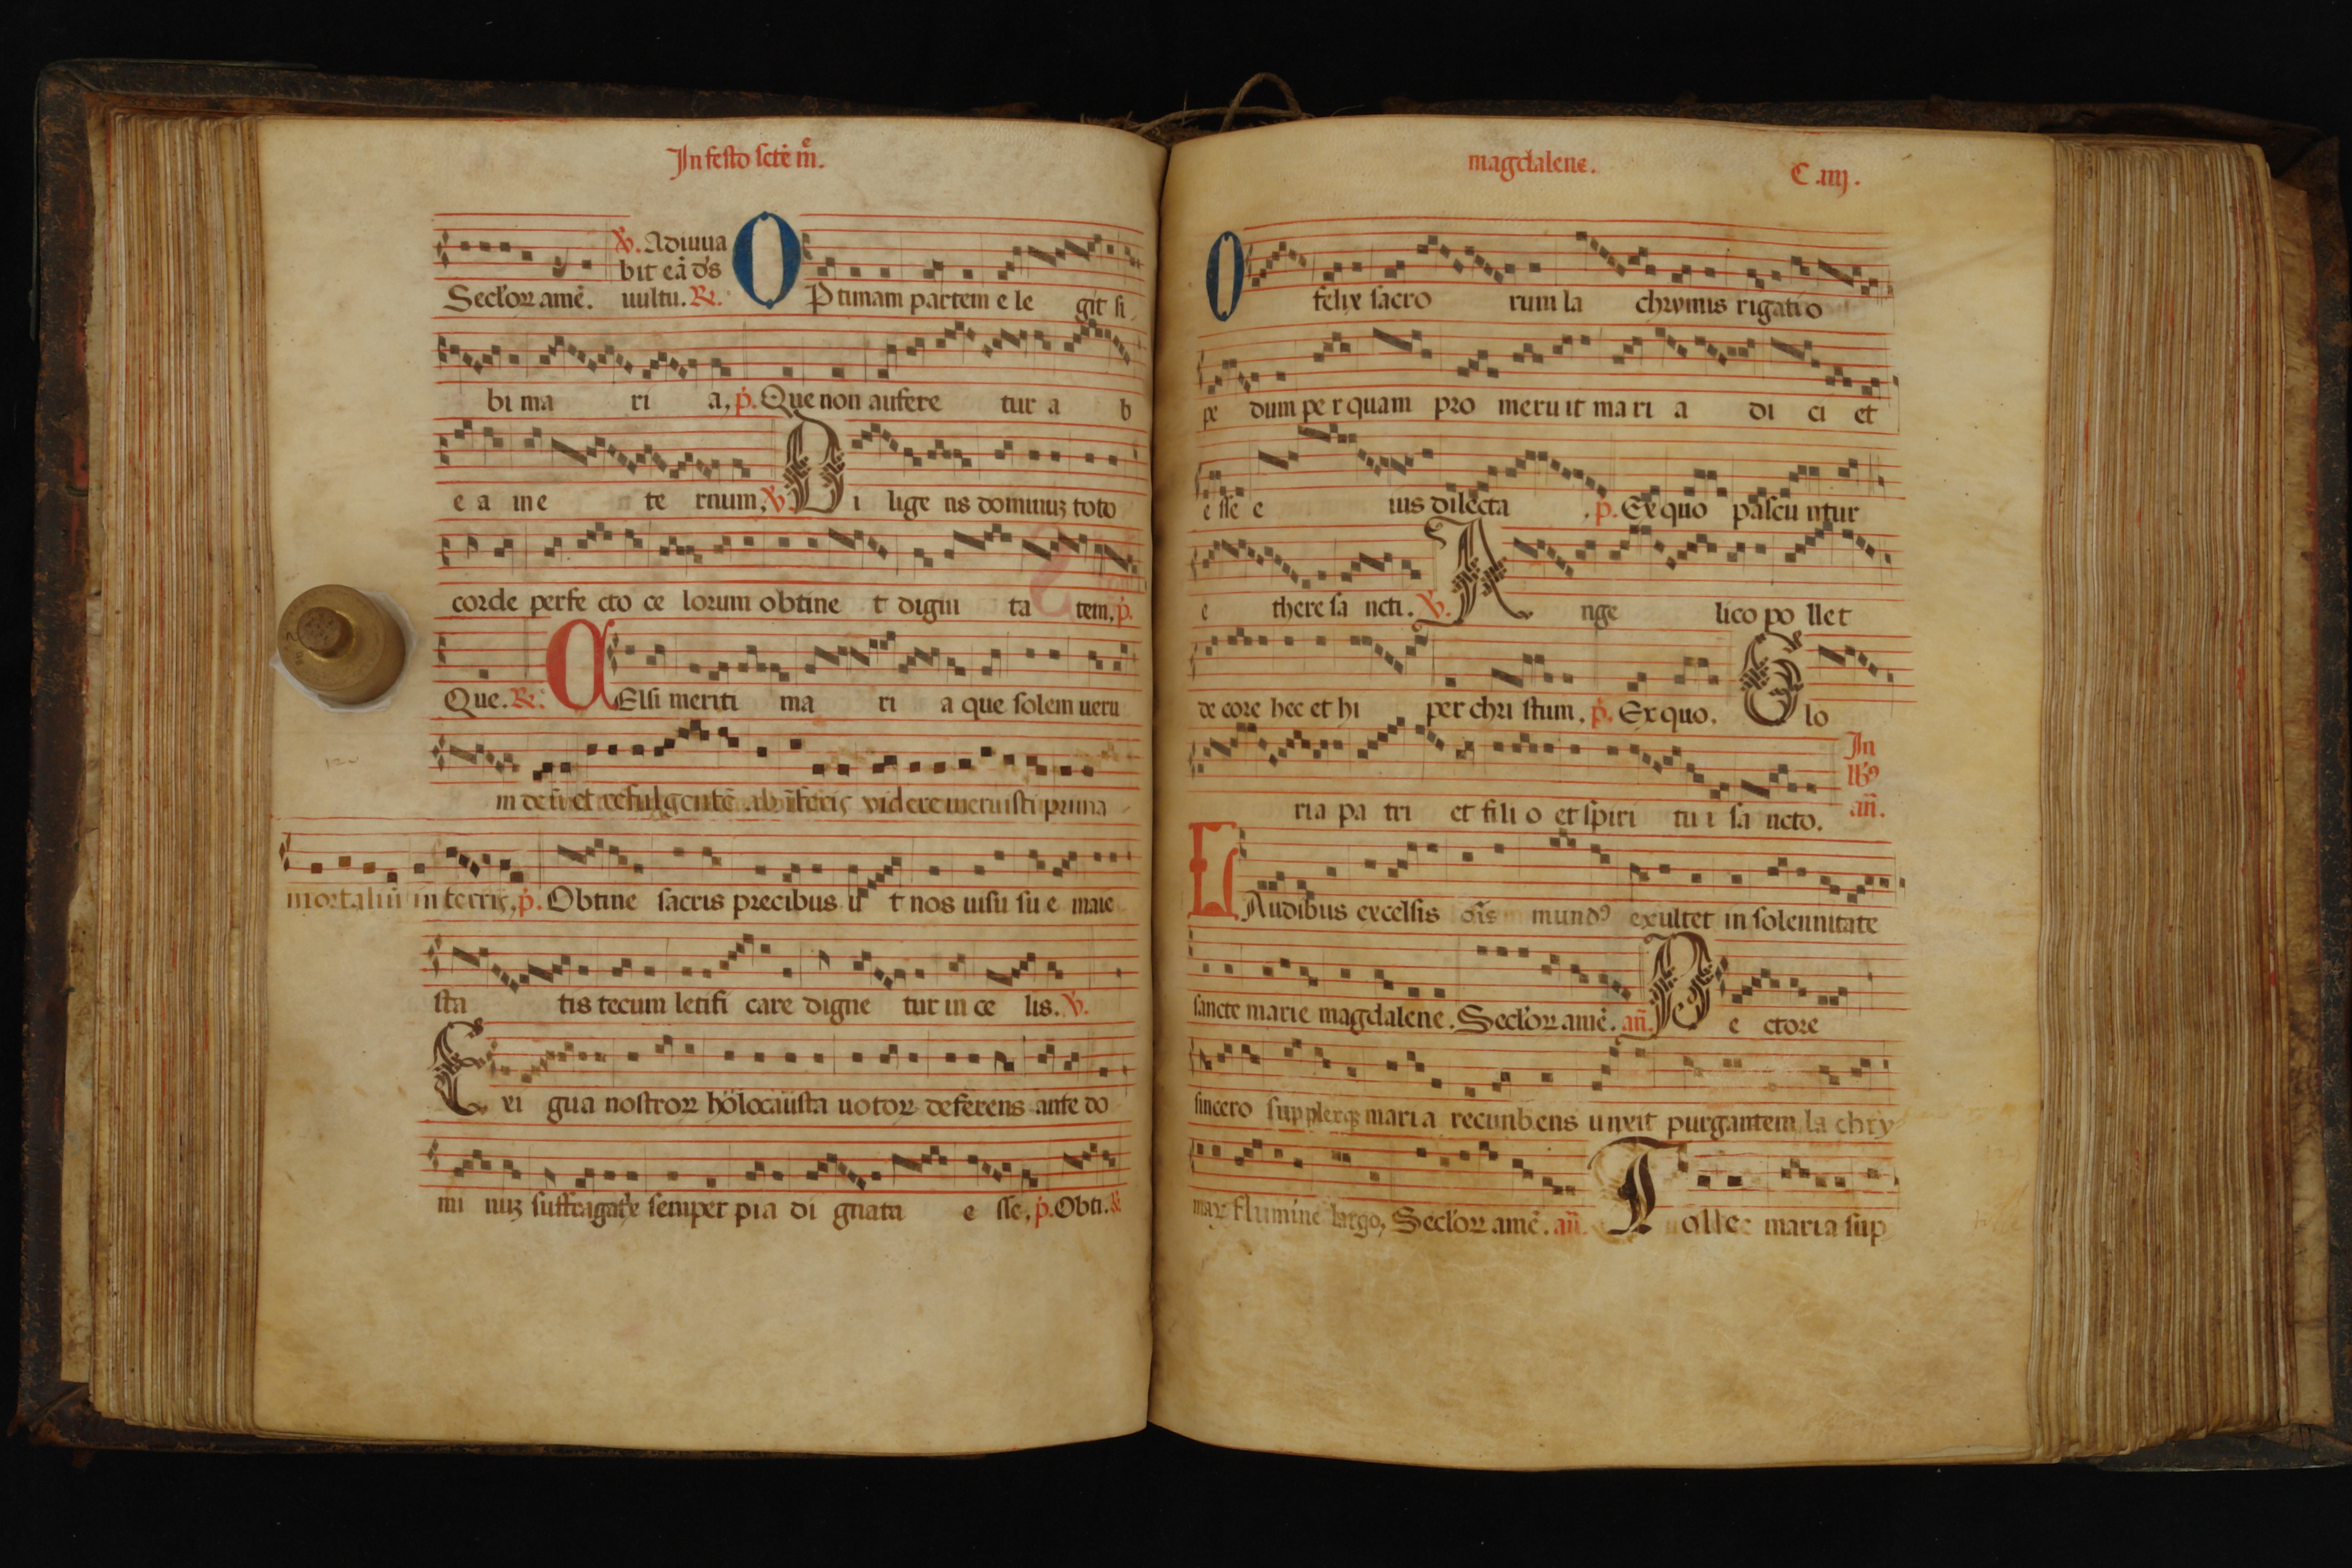 In festo scte m̃.
Secloꝝ amē. ℣. Adiuua
bit eā ds
uultu. ℞. O Ptimam partem e le git si
bi ma ri a, p. Que non aufere tur a b
e a in e te rnum, ℣. Di lige ns dominuꝫ toto
corde perfe cto ce lorum obtine t digni ta tem, p.
Que. ℞. CElsi meriti ma ri a que solem ueru
videre meruisti prima
mortaliū in terris, p. Obtine sacris precibus u t nos uisu su e maie
sta tis tecum letifi care digne tur in ce lis. ℣.
E xi gua nostroꝝ holocausta uotoꝝ deferens ante do
mi nuꝫ suffragatrix semper pia di gnata e sse, p. Obti. &
magdalene. C .iiij.
O felix sacro rum la chrymis rigatio
pe dum pe r quam pro meru it ma ri a di ci et
e sse e ius dilecta , p. Ex quo pascu ntur
e there sa ncti. ℣. A nge lico po lle t
de core hec et hi per chri stum. p. Ex quo. G lo
ria pa tri et fili o et spiri tu i sa ncto. In
lbꝰ
añ.
LAudibus excelsis oīs mundꝰ exultet in solennitate
sancte marie magdalene. Secloꝝ amē. añ. P e ctore
sincero supplexqꝫ maria recunbens unxit purgantem la chry
max flumine largo, Secloꝝ amē. añ. T olle maria sup